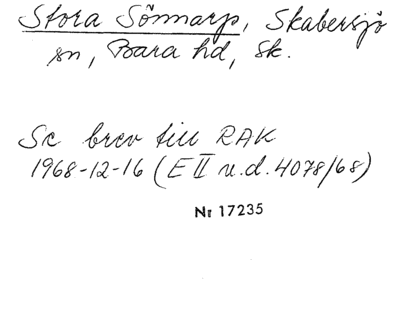 Stora Sönnarp, Skabersjö
sn, Bara hd, Sk.
Se brev till RAK
1968-12-16 (E II u.d. 4078/68)
Nr 17235